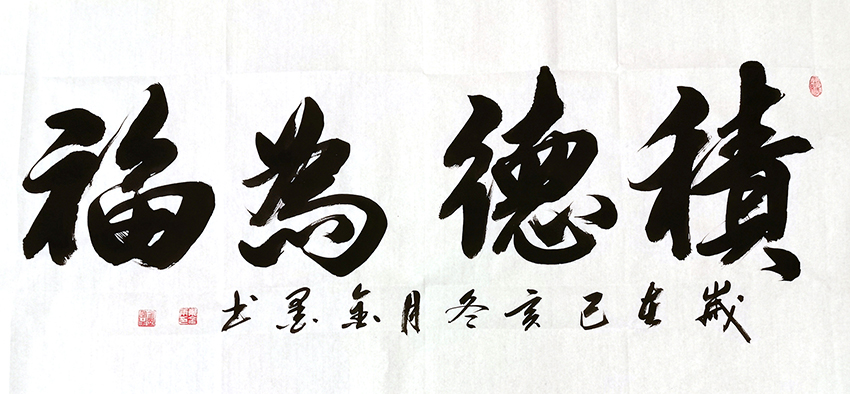 積德為福
歲在己亥冬月金墨书